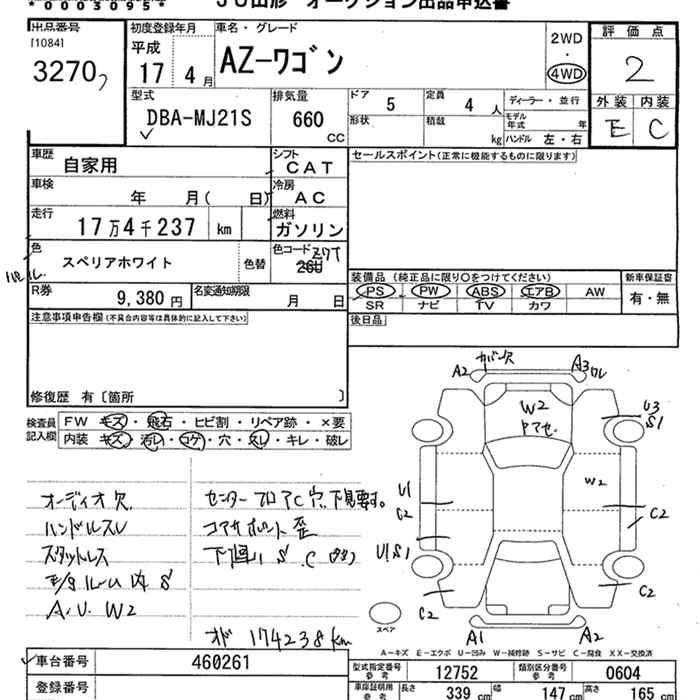 *0003095*
JU山形 オークション出品申込書
出品番号
[1084]
3270
初度登録年月
平成
17 4月
車名・グレード
AZ-ワゴン
2WD
・
4WD
評価点
2
型式
DBA-MJ21S
排気量
660
CC
ドア 5
定員 4 人
ディーラー・並行
形状
積載 kg
モデル年式 年
ハンドル 左・右
外装 内装
E C
車歴
自家用
シフト
CAT
セールスポイント(正常に機能するものに限ります)
車検
年 月( 日)
冷房
AC
走行
17万4千237 km
燃料
ガソリン
色
スペリアホワイト
色替
色コード
26U
Z7T
パール
装備品 (純正品に限り○をつけてください)
新車保証書
PS PW ABS エアB AW
SR ナビ TV カワ
有・無
R券
9,380 円
名変通知期限
月 日
注意事項申告欄(不具合内容等は具体的に記入して下さい)
後日品
修復歴 有〔箇所 〕
検査員
記入欄
FW キズ・飛石・ヒビ割・リペア跡・×要
内装 キズ・汚レ・コゲ・穴・スレ・キレ・破レ
オーディオ欠
ハンドルスレ
スタットレス
A.U. W2
センターフロアC穴、下見要す。
コアサポート歪
下廻り S C
オド 174238km
A2
カバー欠
A3
W2
U3
S1
W2
U1
C2
C2
U1S1
C2
C2
A1
A2
スペア
A-キズ E-エクボ U-凹み W-補修跡 S-サビ C-腐食 XX-交換済
車台番号 460261
型式指定番号
参考
12752
類別区分番号
参考
0604
登録番号
車庫証明用
参考
長さ 339 cm
幅 147 cm
高さ 165 cm